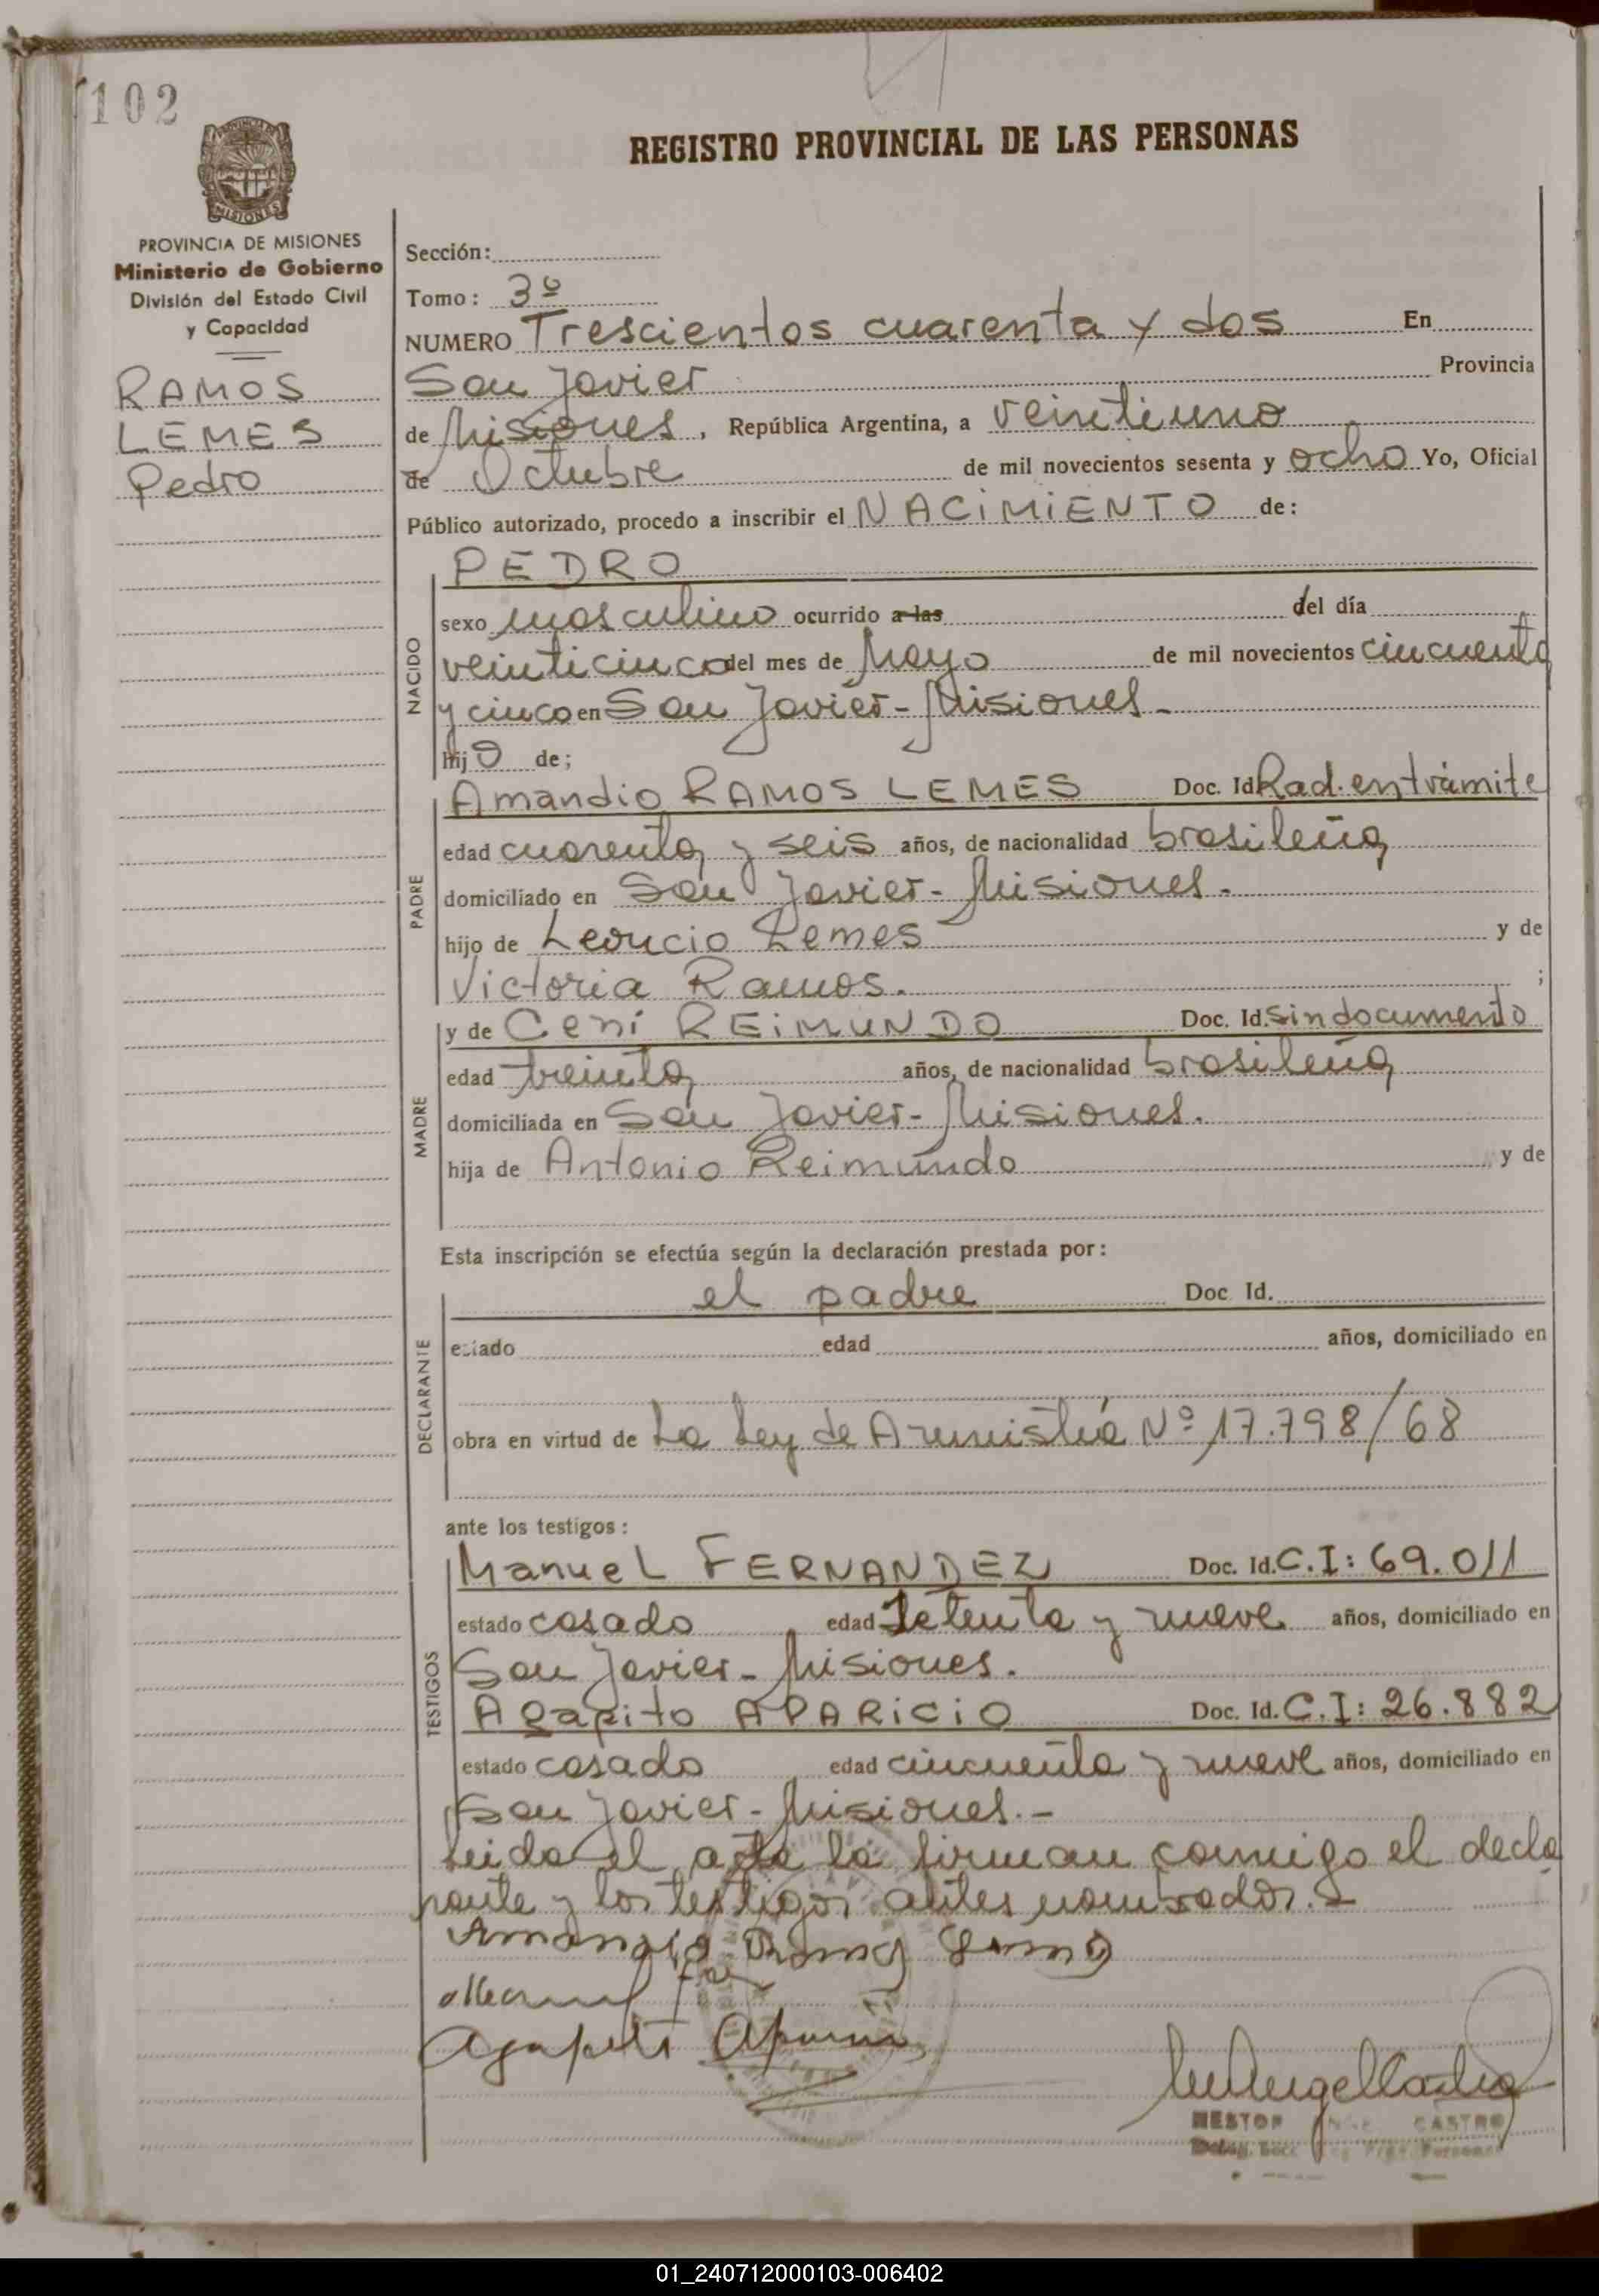 102
REGISTRO PROVINCIAL DE LAS PERSONAS
PROVINCIA DE MISIONES
MISIONES
PROVINCIA DE MISIONES
Ministerio de Gobierno
División del Estado Civil
y Capacidad
RAMOS
LEMES
Pedro
Sección:
Tomo: 3º
NUMERO Trescientos cuarenta y dos En
San Javier Provincia
de Misiones, República Argentina, a veintiuno
de Octubre de mil novecientos sesenta y ocho Yo, Oficial
Público autorizado, procedo a inscribir el NACIMIENTO de:
NACIDO
PEDRO
sexo masculino ocurrido a las del día
veinticinco del mes de Mayo de mil novecientos cincuenta
y cinco en San Javier - Misiones -
hijo de;
PADRE
Amandio RAMOS LEMES Doc. Id Rad. en trámite
edad cuarenta y seis años, de nacionalidad brasileña
domiciliado en San Javier - Misiones.
hijo de Leoncio Lemes y de
Victoria Ramos. ;
MADRE
y de Cení REIMUNDO Doc. Id. sin documento
edad treinta años, de nacionalidad brasileña
domiciliada en San Javier - Misiones.
hija de Antonio Reimundo y de
Esta inscripción se efectúa según la declaración prestada por:
DECLARANTE
el padre Doc. Id.
estado edad años, domiciliado en
obra en virtud de La Ley de Amnistía Nº 17.798/68
ante los testigos:
TESTIGOS
Manuel FERNANDEZ Doc. Id. C.I: 69.011
estado casado edad setenta y nueve años, domiciliado en
San Javier - Misiones.
Agapito APARICIO Doc. Id. C.I: 26.882
estado casado edad cincuenta y nueve años, domiciliado en
San Javier - Misiones.-
Leida el acta la firman conmigo el decla
rante y los testigos antes nombrados.-
Amandio Ramos Lemes
Manuel
Agapito Aparicio
NESTOR CASTRO
01_240712000103-006402